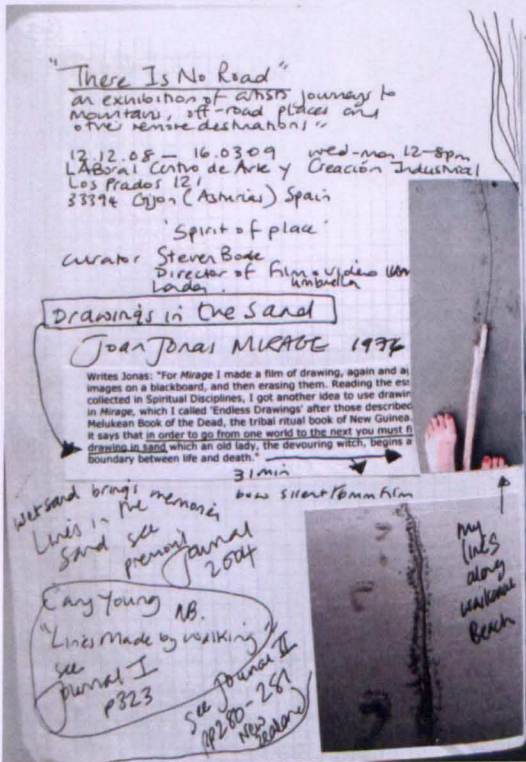 "There Is No Road"
an exhibition of artists journeys to
mountains, off-road places and
other remote destinations"
12.12.08 – 16.03.09 wed-mon 12-8pm
LABoral Centro de Arte y Creación Industrial
Los Prados 121
33394 Gijon (Asturias) Spain
'Spirit of place'
curator Steven Bode
Director of Film & Video
umbrella
Drawings in the Sand
Joan Jonas MIRAGE 1976
Writes Jonas: "For Mirage I made a film of drawing, again and a
images on a blackboard, and then erasing them. Reading the es
collected in Spiritual Disciplines, I got another idea to use drawin
in Mirage, which I called 'Endless Drawings' after those described
Melukean Book of the Dead, the tribal ritual book of New Guinea.
it says that in order to go from one world to the next you must fi
drawing in sand which an old lady, the devouring witch, begins a
boundary between life and death."
31min
b&w silent 16mm film
wet sand brings memories
Lines in the
Sand see
previous journal
2004
Cary Young NB.
"Lines Made by walking"
see
journal I
p323
see journal II
pp280-281
New
Zealand
my
lines
along
Beach